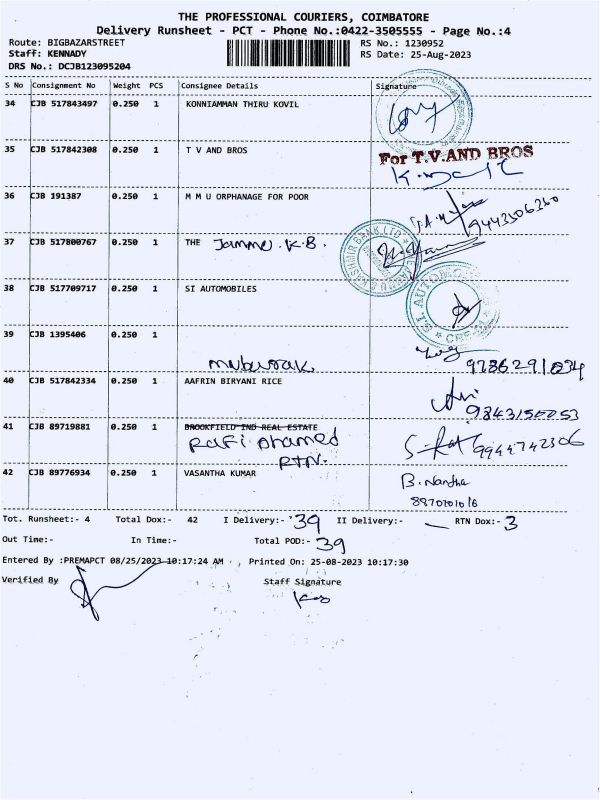 THE PROFESSIONAL COURIERS, COIMBATORE
Delivery Runsheet - PCT - Phone No.:0422-3505555 - Page No.:4
Route: BIGBAZARSTREET RS No.: 1230952
Staff: KENNADY RS Date: 25-Aug-2023
DRS No.: DCJB123095204
S No Consignment No Weight PCS Consignee Details Signature
34 CJB 517843497 0.250 1 KONNIAMMAN THIRU KOVIL
35 CJB 517842308 0.250 1 T V AND BROS For T.V.AND BROS
36 CJB 191387 0.250 1 M M U ORPHANAGE FOR POOR
9443506260
37 CJB 517800767 0.250 1 THE Jammu. K.B.
38 CJB 517709717 0.250 1 SI AUTOMOBILES
39 CJB 1395406 0.250 1
mubarak 9786291034
40 CJB 517842334 0.250 1 AAFRIN BIRYANI RICE
41 CJB 89719881 0.250 1 BROOKFIELD IND REAL ESTATE
Rafi ahamed 9944742306
RTN.
42 CJB 89776934 0.250 1 VASANTHA KUMAR B. Nantha
Tot. Runsheet:- 4 Total Dox:- 42 I Delivery:- 39 II Delivery:- — RTN Dox:- 3
Out Time:- In Time:- Total POD:- 39
Entered By :PREMAPCT 08/25/2023 10:17:24 AM Printed On: 25-08-2023 10:17:30
Verified By Staff Signature